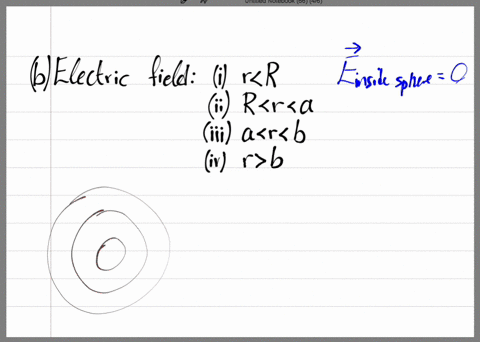 Untitled Notebook (66) (4/6)
(b) Electric field: (i) r<R
(ii) R<r<a
(iii) a<r<b
(iv) r>b
E⃗ inside sphere = 0